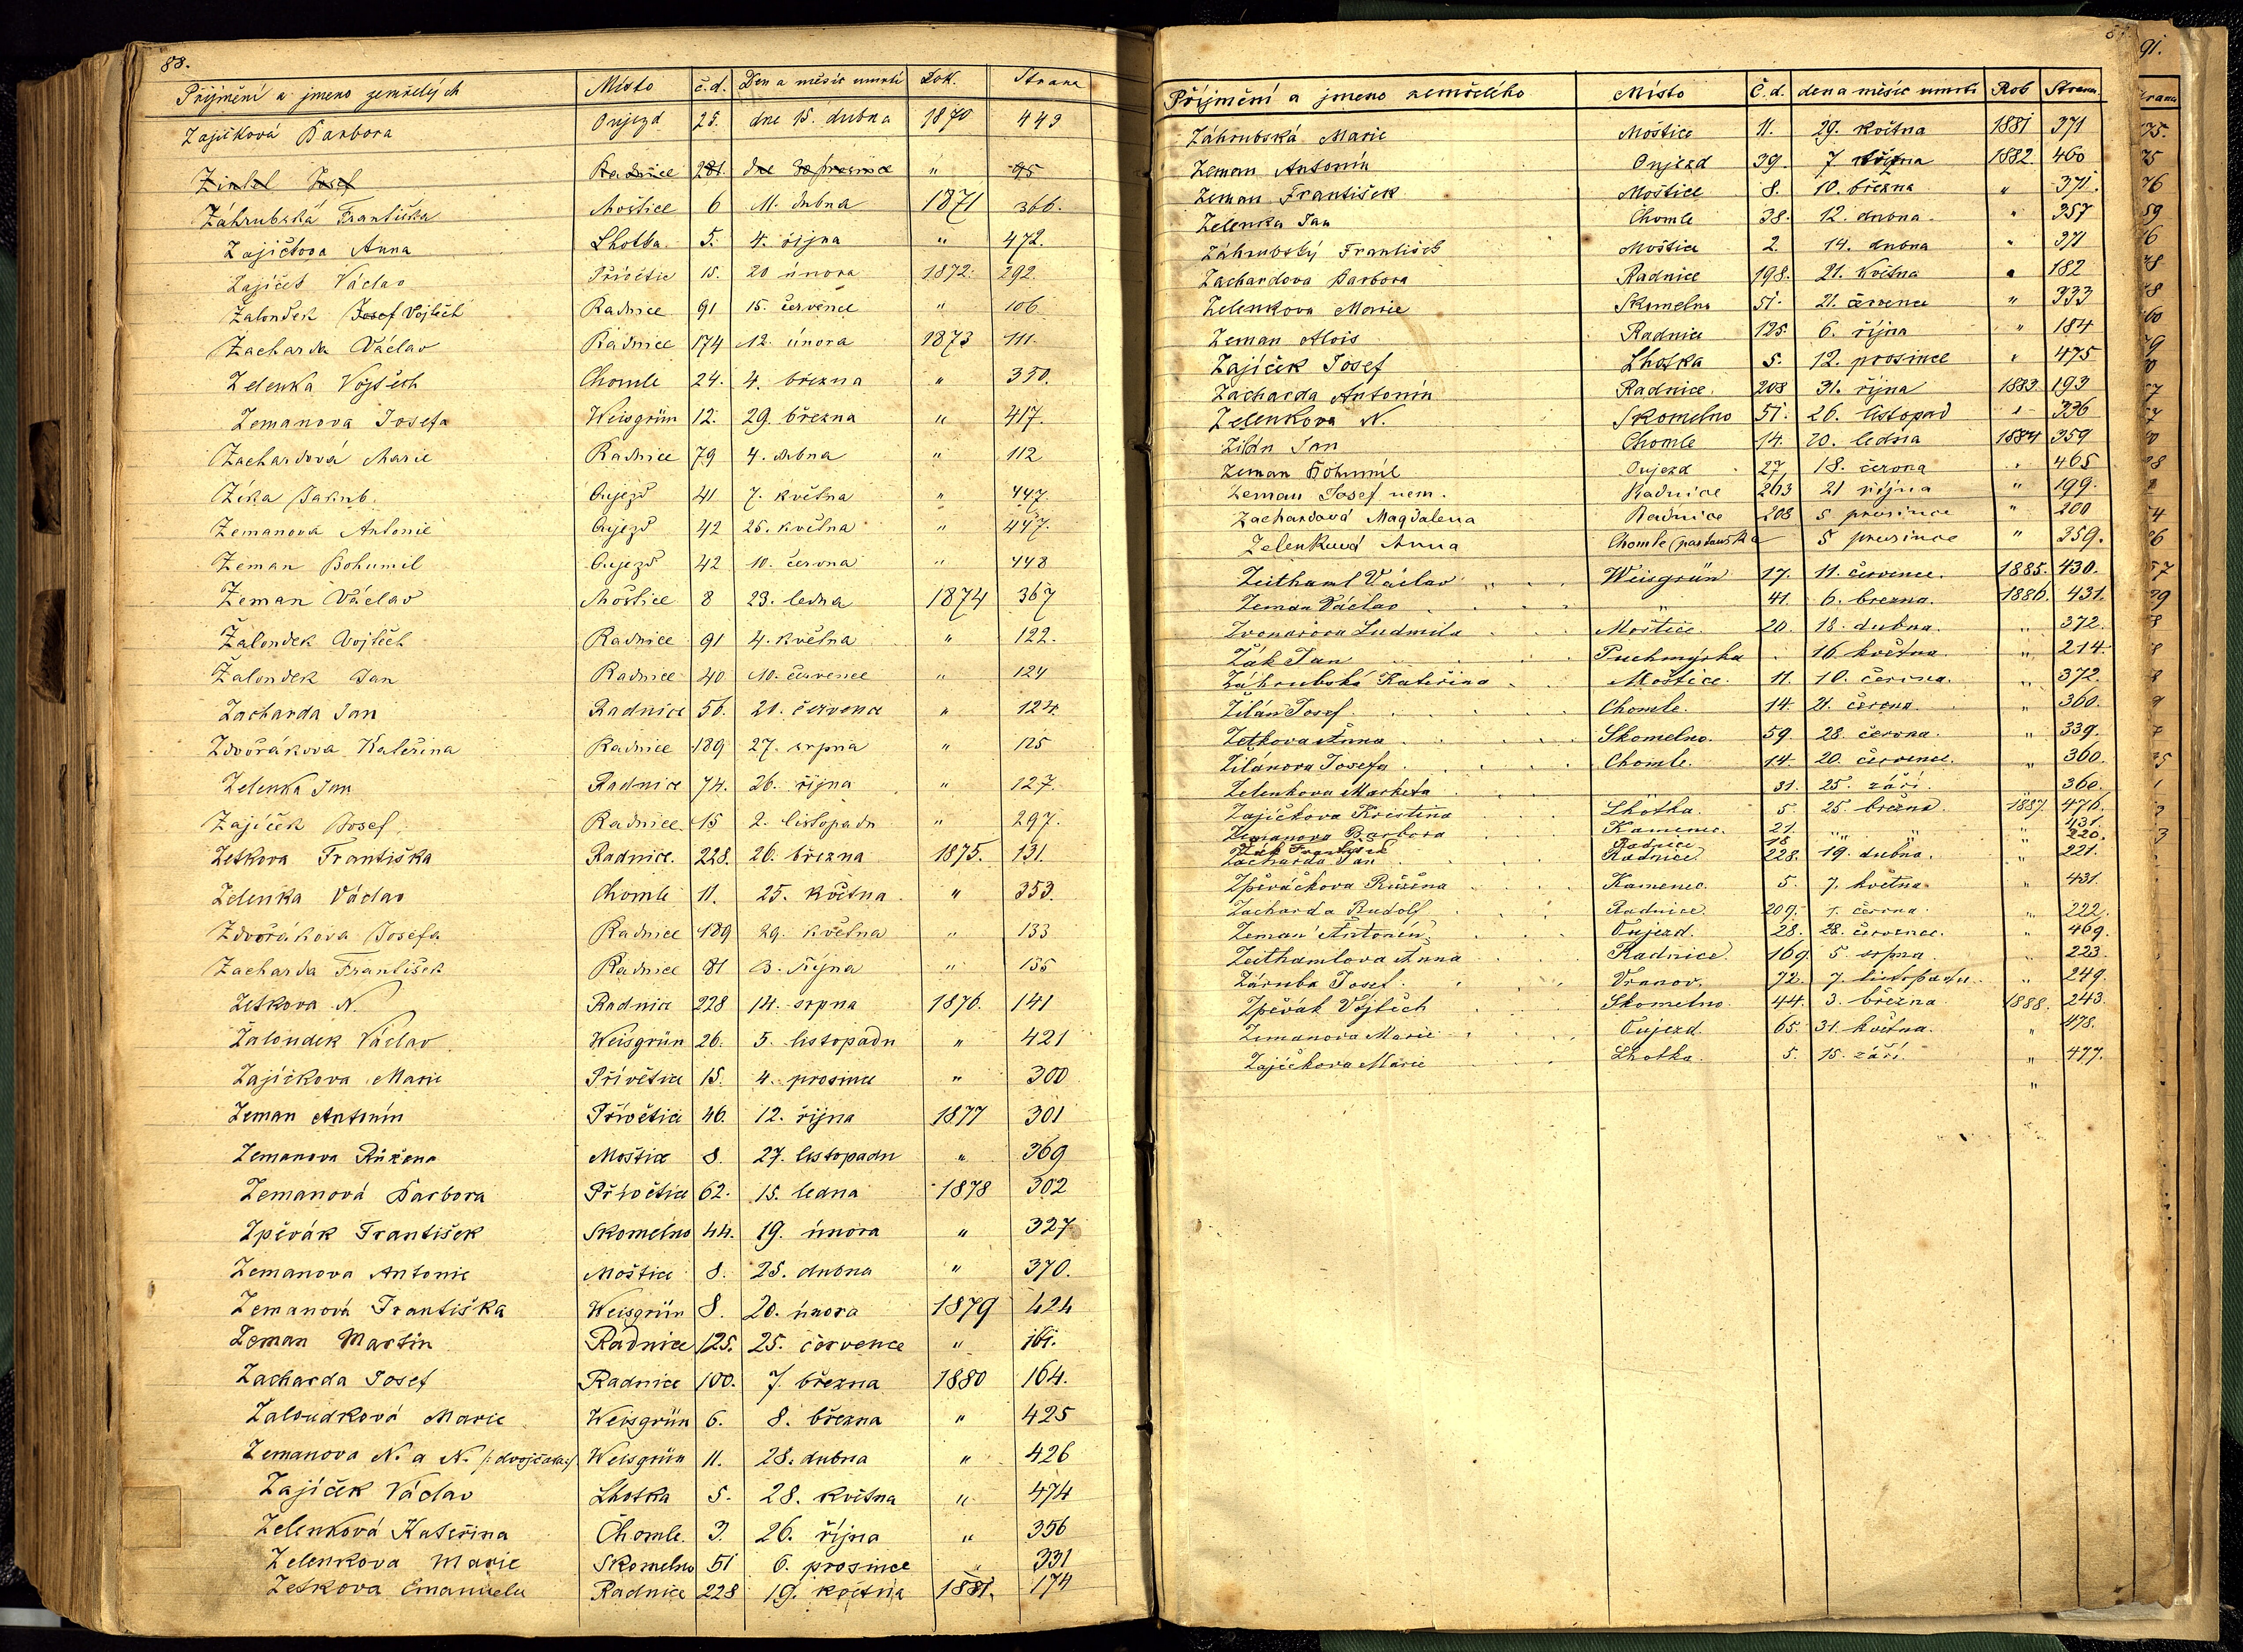 88.
Příjmení a jmeno zemřelých Místo č.d. Den a měsíc umrtí Rok. Strana
Zajíčková Barbora Oujezd 25. dne 15. dubna 1870 443
Zinkel Josef Radnice 281. dne prosince " 95
Záhrubská Františka Moštice 6 11. dubna 1871 366.
Zajíčkova Anna Lhotka 5. 4. října " 472.
Zajíček Václav Přívětic 15. 20 února 1872. 292.
Žaloudek Josef Vojtěch Radnice 91 15. července " 106.
Zacharda Václav Radnice 174 12. února 1873 111.
Zelenka Vojtěch Chomle 24. 4. března " 350.
Zemanova Josefa Weisgrün 12. 29. března " 417.
Zachardová Marie Radnice 79 4. dubna " 112
Zíka Jakub. Oujezd 41 7. května " 447.
Zemanova Antonie Oujezd 42 25. května " 447.
Zeman Bohumil Oujezd 42 10. června " 448
Zeman Václav Moštice 8 23. ledna 1874 367
Žaloudek Vojtěch Radnice 91 4. května " 122.
Žaloudek Jan Radnice 40 10. července " 124
Zacharda Jan Radnice 56. 21. července " 124.
Zdvořákova Kateřina Radnice 189 27. srpna " 125
Zelenka Jan Radnice 74. 26. října " 127.
Zajíček Josef Radnice 15 2. listopadu " 297.
Zetkova Františka Radnice. 228. 26. března 1875. 131.
Zelenka Václav Chomle 11. 25. května " 353.
Zdvořákova Josefa Radnice 189 29. května " 133
Zacharda František Radnice 81 3. října " 135
Zetkova N. Radnice 228 14. srpna 1876. 141
Žaloudek Václav Weisgrün 26. 5. listopadu " 421
Zajíčkova Marie Přívětice 15. 4. prosince " 300
Zeman Antonín Přívětice 46. 12. října 1877 301
Zemanova Růžena Moštice 8. 27. listopadu " 369
Zemanová Barbora Přívětice 62. 15. ledna 1878 302
Zpěvák František Skomelno 44. 19. února " 327
Zemanova Antonie Moštice 8. 25. dubna " 370.
Zemanová Františka Weisgrün 8. 20. února 1879 424
Zeman Martin Radnice 125. 25. července " 161.
Zacharda Josef Radnice 100. 7. března 1880 164.
Zaloudková Marie Weisgrün 6. 8. března " 425
Zemanova N. a N. /: dvojčata:/ Weisgrün 11. 28. dubna " 426
Zajíček Václav Lhotka 5. 28. května " 474
Zelenková Kateřina Chomle. 3. 26. října " 356
Zelenkova Marie Skomelno 51 6. prosince " 331
Zetkova Emanuela Radnice 228 19. května 1881. 174
Příjmení a jmeno zemřelého Místo Č.d. den a měsíc umrtí Rok Strana
Záhrubská Marie Moštice 11. 29. května 1881 371
Zeman Antonín Oujezd 39. 7. 1882. 460
Zeman František Moštice 8. 10. března " 371.
Zelenka Jan Chomle 38. 12. dubna " 357
Záhrubský František Moštice 2. 14. dubna " 371
Zachardova Barbora Radnice 198. 21. května " 182
Zelenkova Marie Skomelno 51. 21. července " 333
Zeman Alois Radnice 125. 6. října " 184
Zajíček Josef Lhotka 5. 12. prosince " 475
Zacharda Antonín Radnice. 208 31. října 1883. 193
Zelenkova N. Skomelno 51. 26. listopad " 336
Zilán Jan Chomle 14. 20. ledna 1884 359
Zeman Bohumil Oujezd 27, 18. června " 465
Zeman Josef nem. Radnice 263 21 října " 199.
Zachardová Magdalena Radnice 208 5 prosince " 200
Zelenková Anna Chomle (pastouška 5 prosince " 359.
Zeithaml Václav Weisgrün 17. 11. července. 1885. 430.
Zeman Václav " 41. 6. brezna. 1886. 431.
Zvonarova Ludmila Moštice. 20. 18. dubna. " 372.
Žák Jan Puchmýrka 16 května. " 214.
Záhrubská Kateřina Moštice. 11. 10. června. " 372.
Žilán Josef Chomle. 14. 21. června. " 360.
Zetkova Anna Skomelno. 59. 28. června. " 339.
Žilánova Josefa Chomle. 14 20. července. " 360.
Zelenkova Marketa 31. 25. září. 360.
Zajíčkova Kristina Lhotka. 5 25. března. 1887. 476.
Zemanova Barbora Kamenec. 21. " " " 431.
Žák František Radnice 18 " 220.
Zacharda Jan Radnice. 228. 19. dubna. " 221.
Zpěváčkova Růžena Kamenec. 5. 7. května " 431.
Zacharda Rudolf Radnice. 209. 1. června. " 222.
Zeman Antonín Oujezd. 28. 28. července. " 469.
Zeithamlova Anna Radnice. 169. 5 srpna. " 223.
Záruba Josef. Vranov. 72. 7. listopadu. " 249.
Zpěvák Vojtěch Skomelno. 44. 3. března. 1888. 243.
Zemanova Marie Oujezd. 65. 31. května. " 478.
Zajíčkova Marie Lhotka. 5. 15. září. " 477.
"
91.